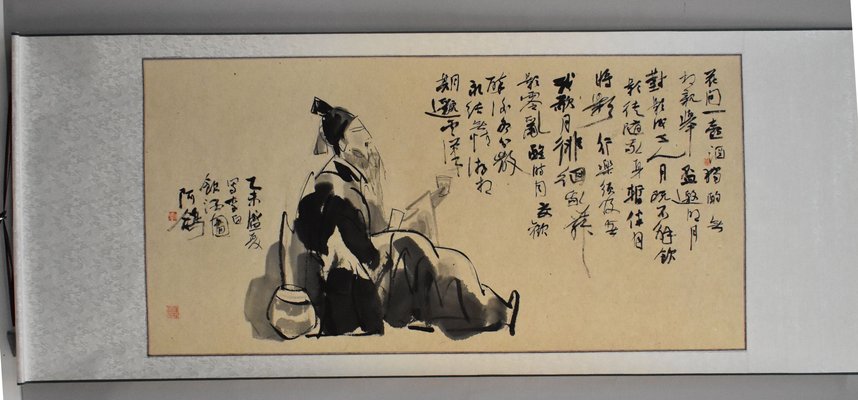 花间一壶酒独酌无
相親舉盃邀明月
對影成三人月既不解飲
影徒随我身暫伴月
將影行樂須及春
我歌月徘徊我舞
影零亂醒时同交歡
醉后各分散
永结無情游相
期邈雲漢
乙未盛夏
写李白
飲酒圖
阿鸽